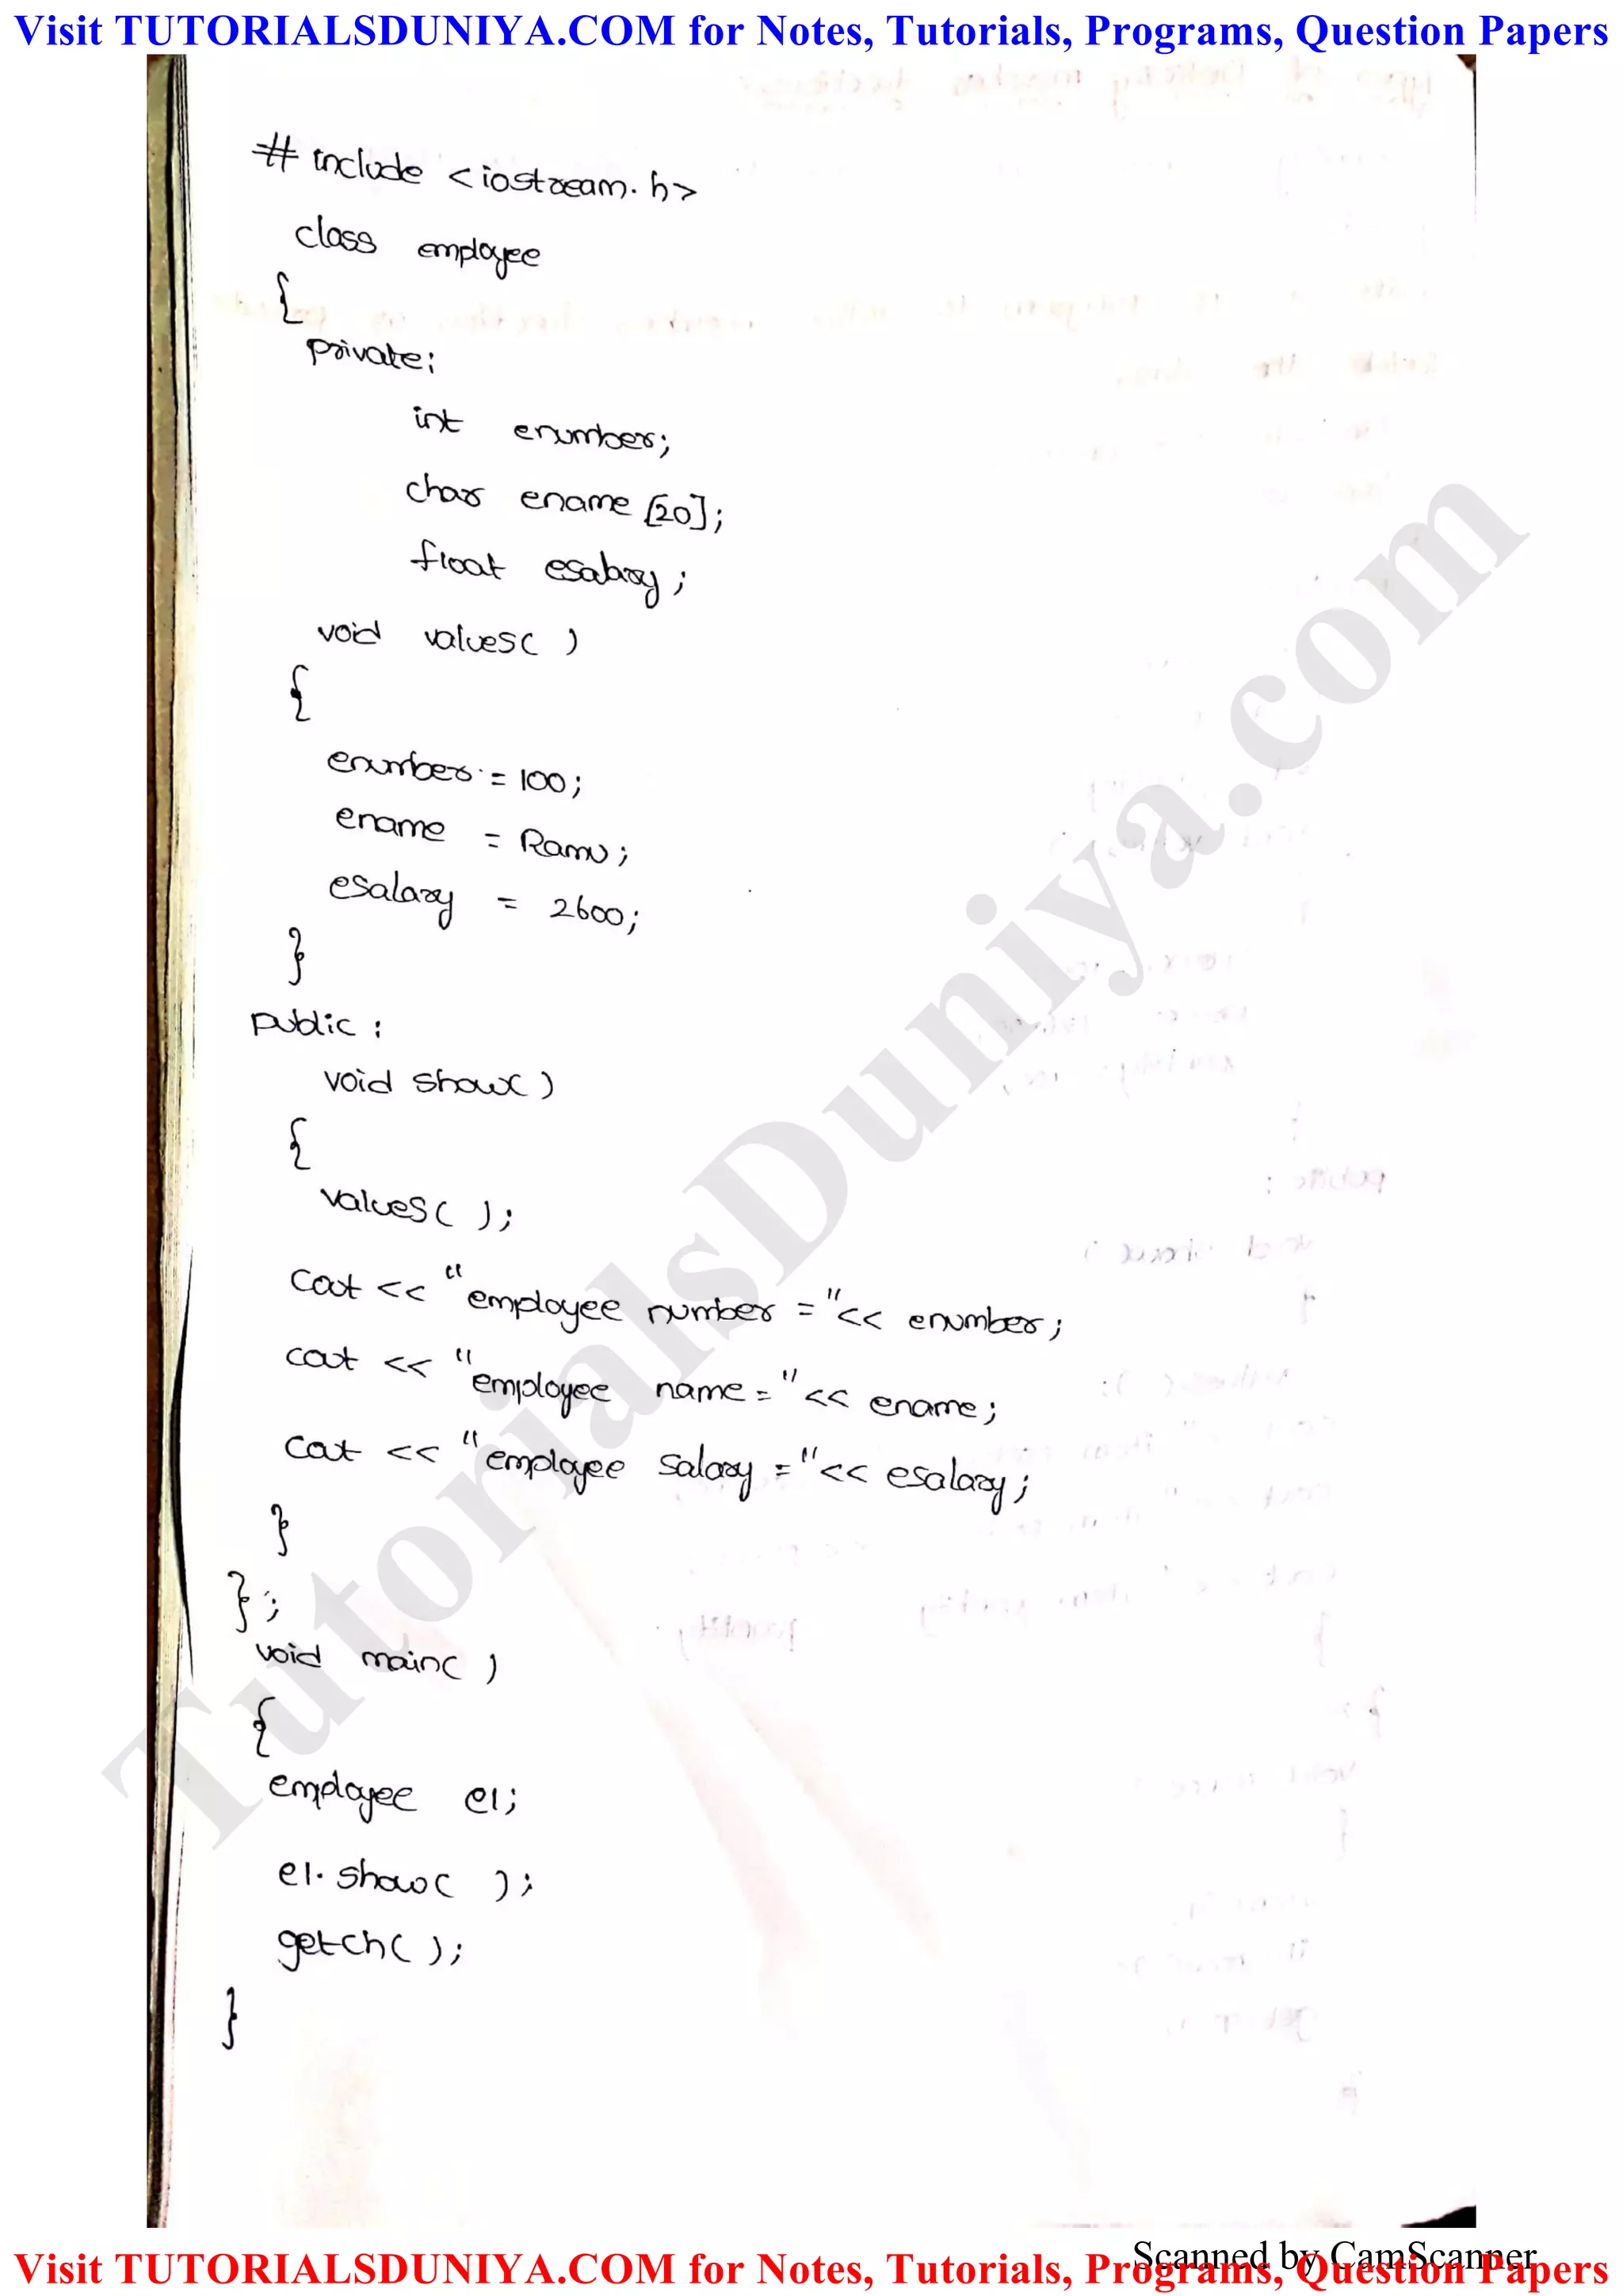 Visit TUTORIALSDUNIYA.COM for Notes, Tutorials, Programs, Question Papers
# include <iostream.h>
class employee
{
private:
int enumber;
char ename [20];
float esalary;
void values( )
{
enumber = 100;
ename = Ramu;
esalary = 2600;
}
public :
void show( )
{
values( );
cout << "employee number = "<< enumber;
cout << "employee name = "<< ename;
cout << "employee salary = "<< esalary;
}
};
void main( )
{
employee e1;
e1. show( );
getch( );
}
TutorialsDuniya.com
Scanned by CamScanner
Visit TUTORIALSDUNIYA.COM for Notes, Tutorials, Programs, Question Papers